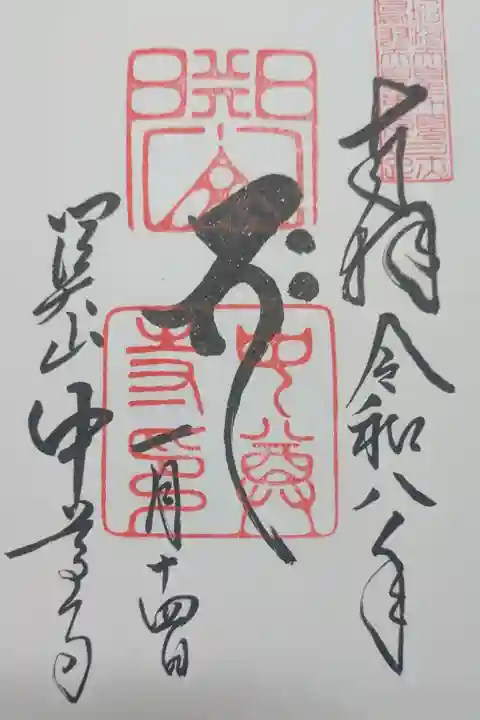 奉拝 令和八年
一月十四日
関山 中尊寺
中尊
寺印